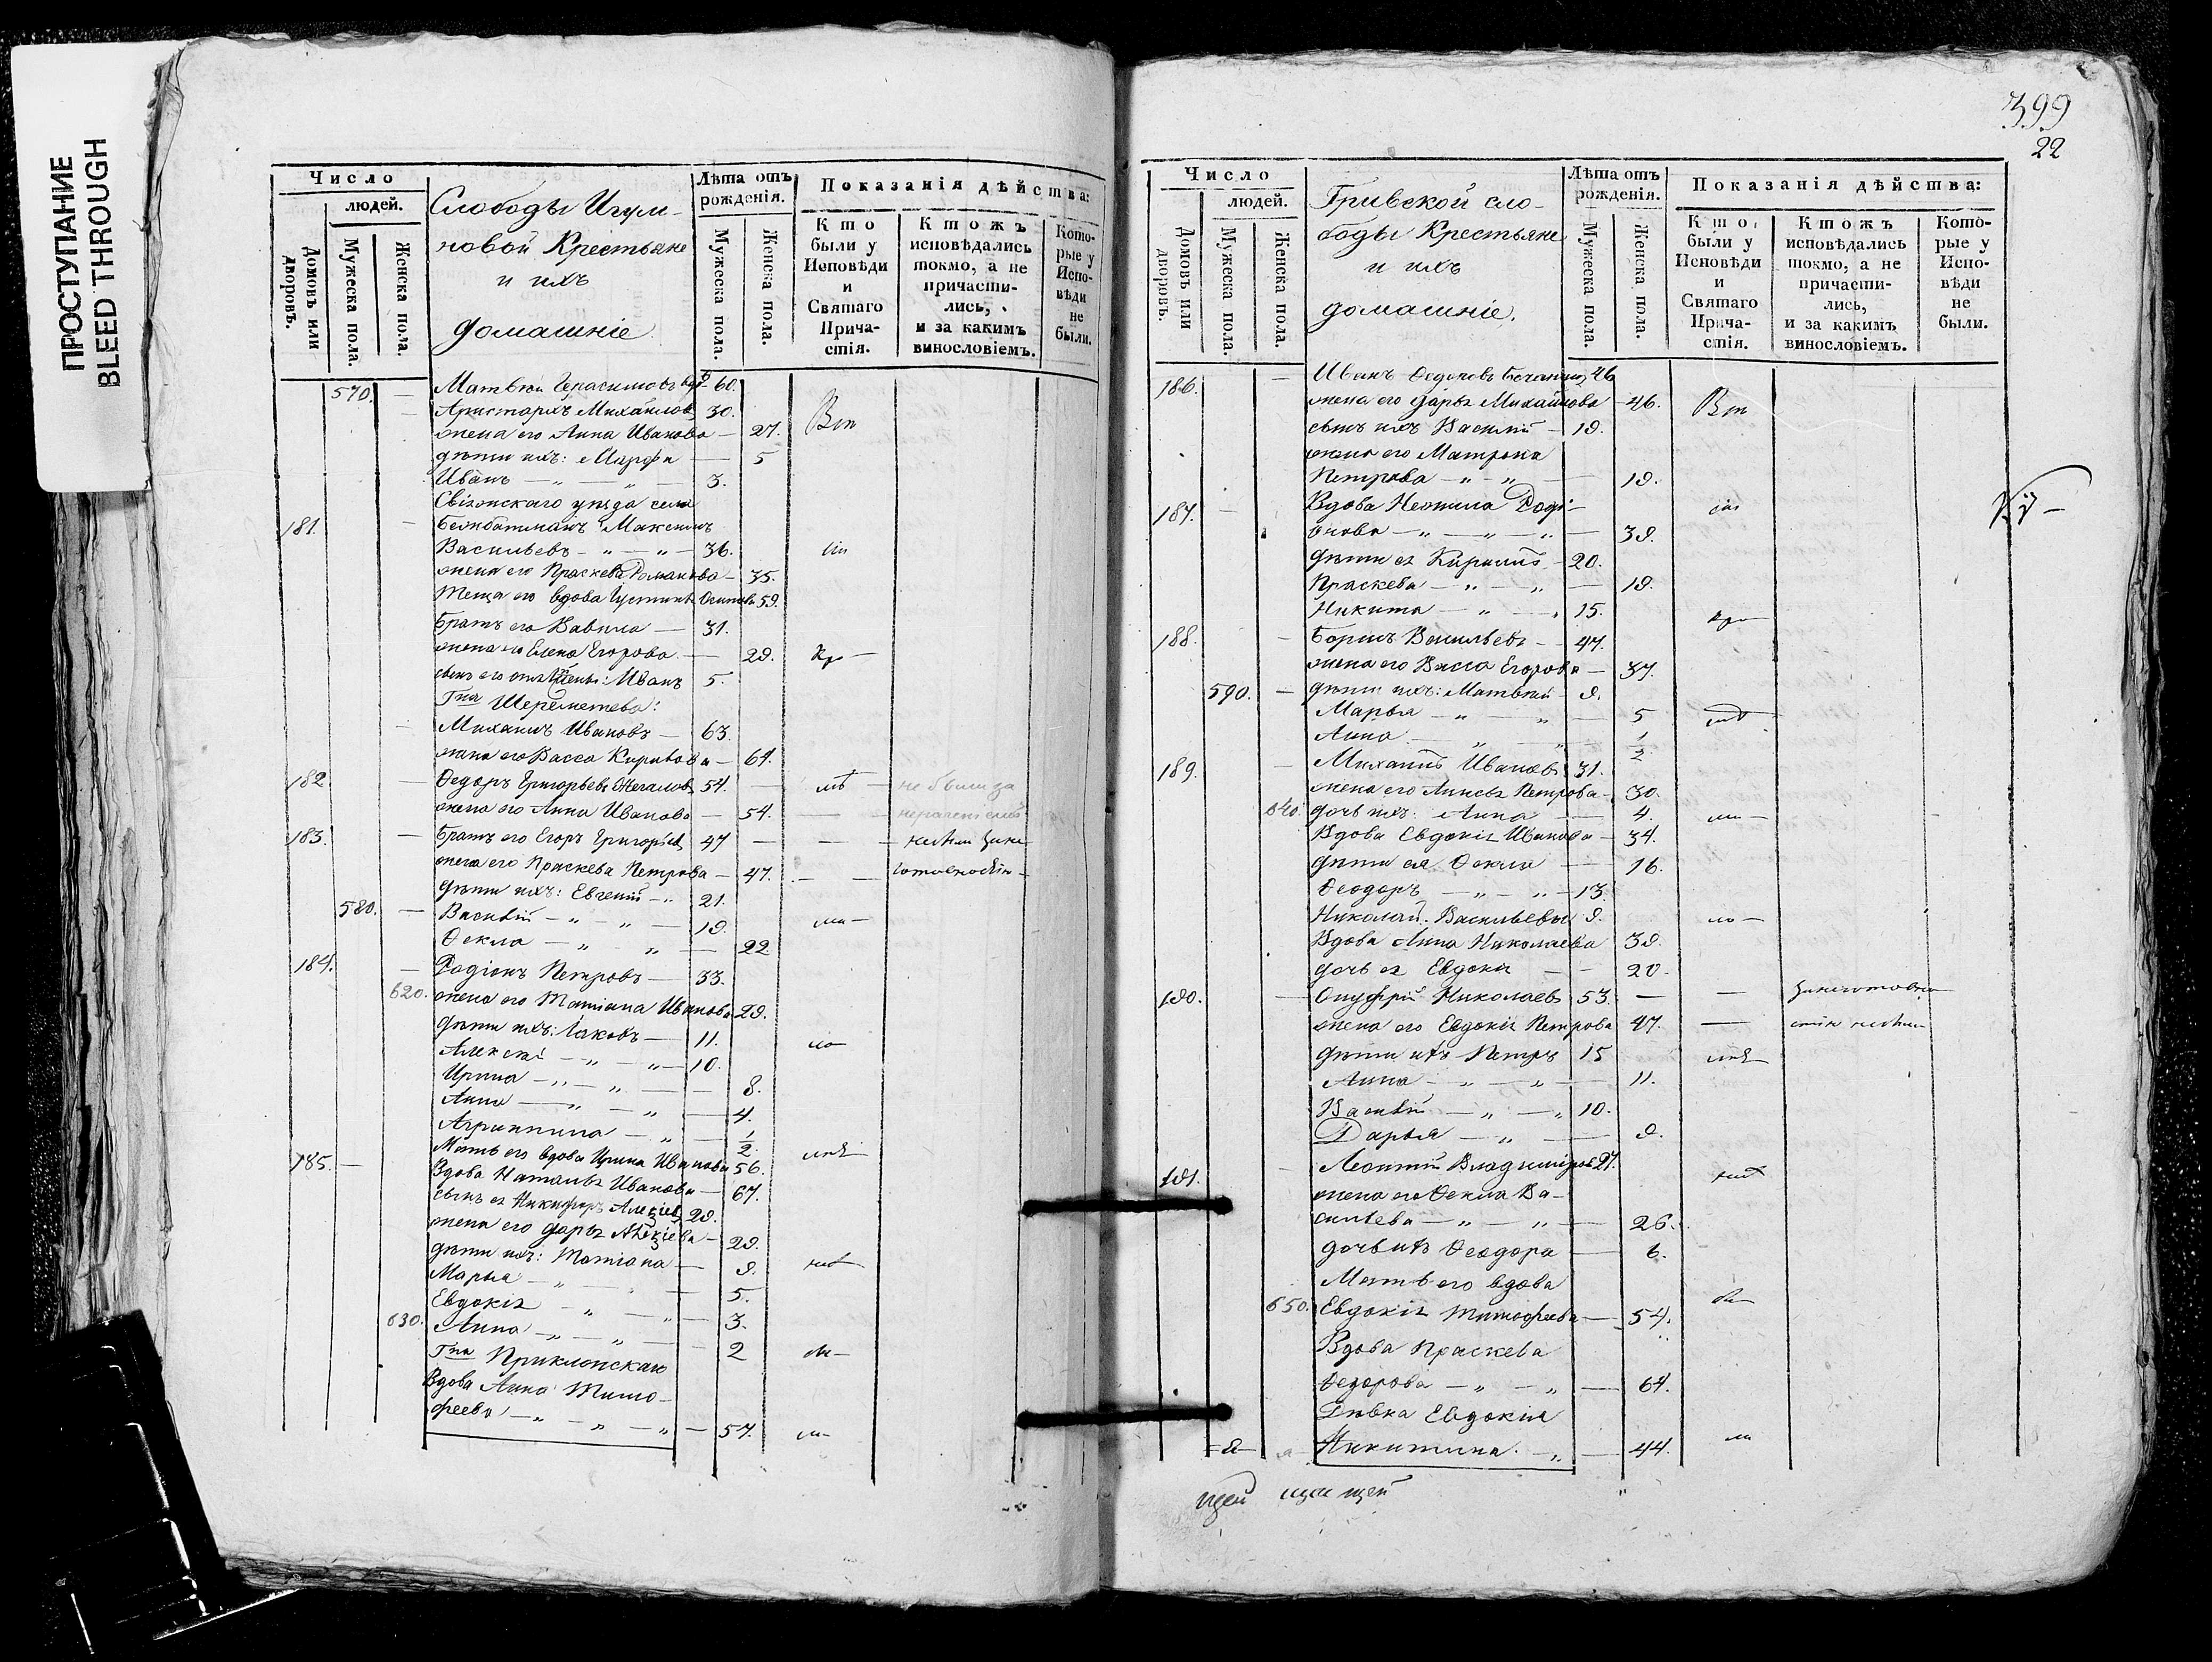 ПРОСТУПАНИЕ
BLEED THROUGH
Число
людей.
Домовъ или дворовъ.
Мужеска пола.
Женска пола.
Слободы Игум-
новой Крестьяне
и ихъ
домашніе
Лѣта отъ рожденія.
Мужеска пола.
Женска пола.
Показанія дѣйства:
Кто были у Исповѣди и Святаго Причастія.
Ктожъ исповѣдались токмо, а не причастились, и за какимъ винословіемъ.
Которые у Исповѣди не были.
570. Матвѣй Герасимовъ 60.
Аристархъ Михайловъ 30.
жена его Анна Иванова — 27.
дѣти ихъ: Марфа — 5
Иванъ — „ — „ — 3.
Свіяжскаго уѣзда села
181.
Васильевъ — „ — „ — 36.
жена его Праскева Романова — 35.
Теща его вдова Осипова 59.
братъ его Вавила — 31.
жена его Елена Егорова — 29.
Иванъ 5.
Гна Шереметева:
Михаилъ Ивановъ — 63.
жена его Васса Кирилова — 64.
182. Ѳедоръ Григорьевъ 54.
жена его Анна Иванова — 54.
183. братъ его Егоръ Григорьевъ 47
жена его Праскева Петрова — 47.
дѣти ихъ: Евгеній — „ 21.
580. Василій — „ — „ — 19.
Ѳекла — „ „ — 22
184. Родіонъ Петровъ — 33.
620. жена его Татіана Иванова 29.
дѣти ихъ: Іаковъ — 11.
Алексѣй — „ — „ — 10.
Ирина — „ — „ — 8.
Анна — „ — „ — 4.
Агрипина — „ — 1/2.
Мать его вдова Ирина Иванова 56.
185. Вдова Наталья Иванова — 67.
сынъ ея Никифоръ 29.
жена его Дарья — 29.
дѣти ихъ: Татіана — 9.
Марья — „ — 5.
Евдокія — „ — „ — 3.
630. Анна — „ — „ — 2
Гжи Приклонской
Вдова Анна Тимо-
феева — „ — „ — „ — 57.
399
22
Число
людей.
Домовъ или дворовъ.
Мужеска пола.
Женска пола.
Гривской сло-
боды Крестьяне
и ихъ
домашніе.
Лѣта отъ рожденія.
Мужеска пола.
Женска пола.
Показанія дѣйства:
Кто были у Исповѣди и Святаго Причастія.
Ктожъ исповѣдались токмо, а не причастились, и за какимъ винословіемъ.
Которые у Исповѣди не были.
186. Иванъ 46
жена его Дарья Михайлова — 46.
сынъ ихъ Василій — 19.
жена его Матрона
Петрова — „ — „ — 19.
187. Вдова Неонила Роді-
онова — „ — „ — „ — 39.
дѣти ея Кирилъ — 20.
Праскева — „ — „ — 19.
Никита — „ — „ 15.
188. Борисъ Васильевъ — 47.
жена его Васса Егорова — 37.
590. — дѣти ихъ: Матвѣй — 9.
Марья — „ — „ — 5
Анна — „ — „ — 1/2
189. Михаилъ Ивановъ 31.
жена его Анисья Петрова — 30.
640. дочь ихъ: Анна — 4.
Вдова Евдокія Иванова — 34.
дѣти ея Ѳекла — 16.
Ѳеодоръ — „ — „ — 13.
Николай Васильевы 9.
Вдова Анна Николаева 39.
дочь ея Евдокія — 20.
190. Онуфрій Николаевъ 53.
жена его Евдокія Петрова 47.
дѣти ихъ Петръ 15
Анна — „ — „ — 11.
Василій — „ — „ 10.
Дарья — „ — 9.
191. Леонтій Владиміровъ 27.
жена его Ѳекла Ва-
сильева — „ — „ — 26.
дочь ихъ Ѳеодора — 6.
Мать его вдова
650. Евдокія Тимофеева — 54.
Вдова Праскева
Ѳедорова — „ — „ — 64.
Дѣвка Евдокія
Никитина. — „ — 44.